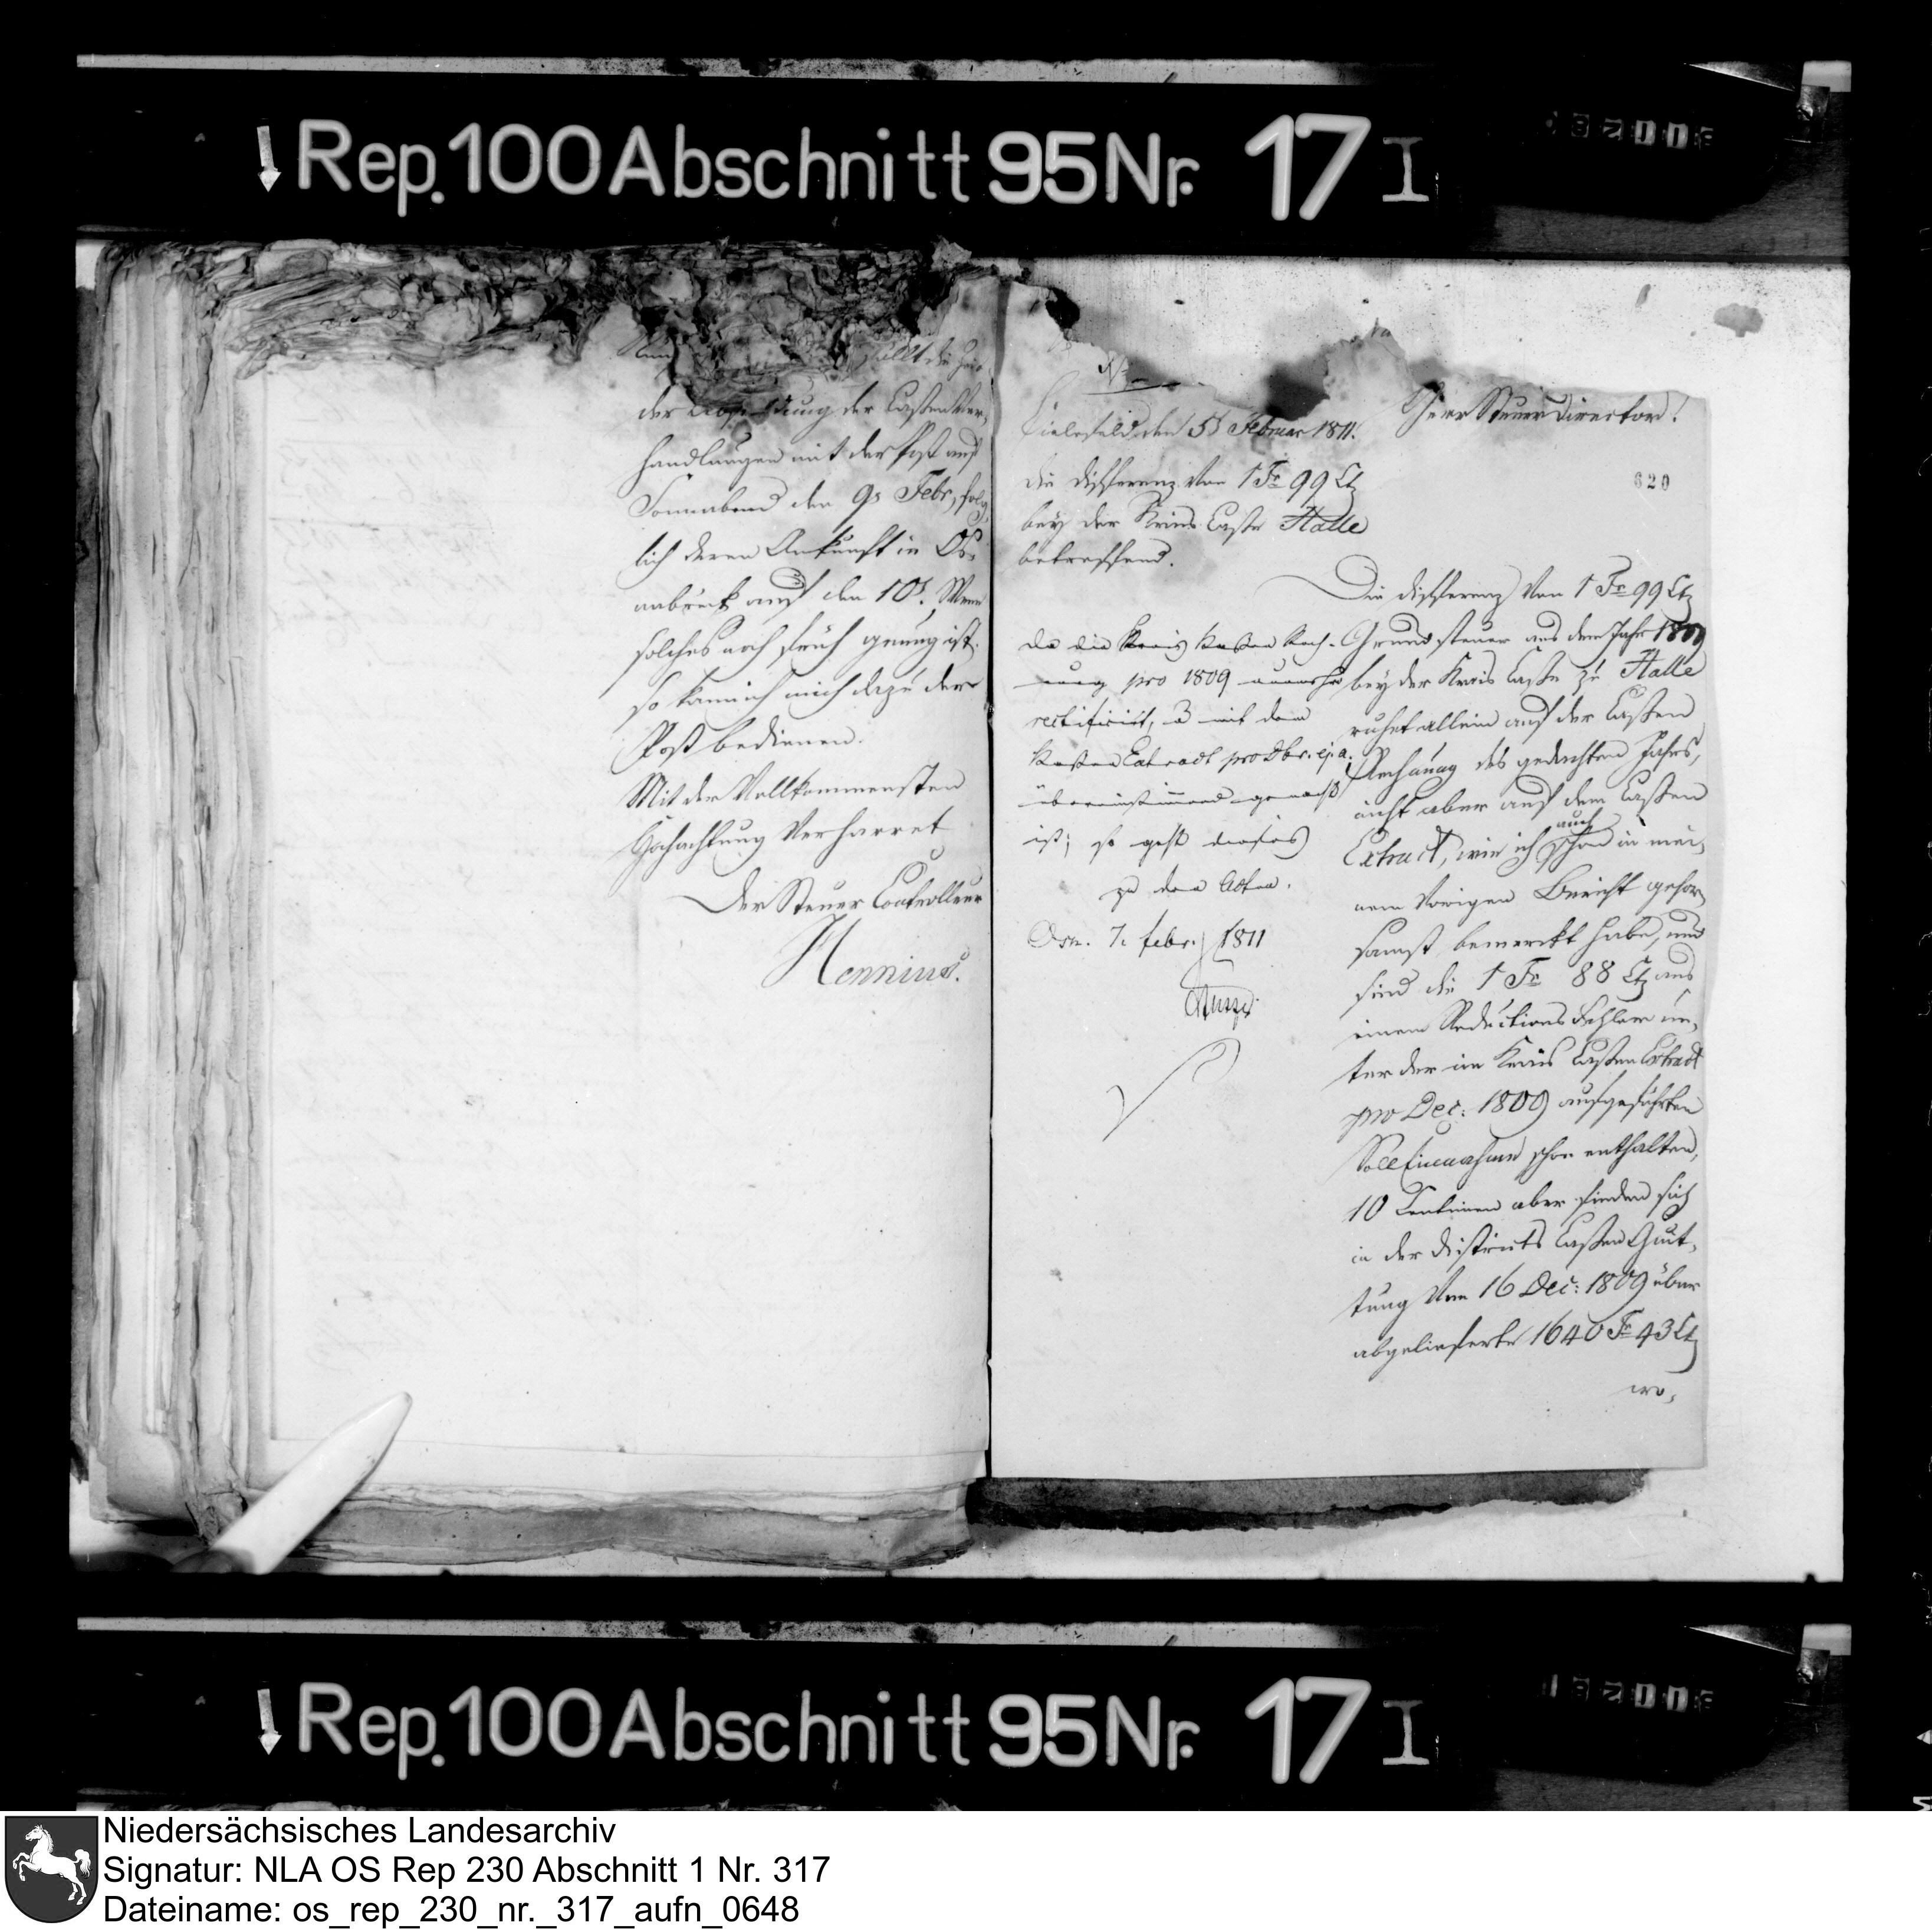 Rep. 100 Abschnitt 95 Nr. 17 I
fällt die
der der Cassenver,
handlungen mit der Post auf
Sonnabend den 9s Febr, folg,
lich deren Ankunft in Os,
nabrück auf den 10t. Wenn
solches noch früh genung ist,
so kann ich mich dazu der
Post bedienen.
Mit der Vollkommensten
Hochachtung Verharret
Der Steuer Controlleur
Hennius.
No
Bielefeld den 5t Februar 1811.
die differenz Von 1 Fr 99 Ct
bey der Kreis Casse Halle
betreffend.
da die Kreis Kassen Rech-
nung pro 1809 nunmehr
rectificirt, & mit dem
Kassen Extract pro Dbr. ej. a.
übereinstimmend gemacht
ist; so geht dieses
zu den Akten.
Osn. 7. febr. 1811
Herr Steuer Director!
620
Die differenz Von 1 Fr 99 Ct
Grundsteuer aus dem Jahr 1809
bey der Kreis Casse zu Halle
ruhet allein auf der Cassen
Rechnung des gedachten Jahrs,
nicht aber auf dem Cassen
Extract, wie ich auch schon in mei,
nem Vorigen Bericht gehor,
samst bemerckt habe, und
sind die 1 Fr 88 Ct aus
einem Reductions Fehler un,
ter der im Kreis Cassen Extract
pro Dec: 1809 aufgeführten
Soll Einnahme schon enthalten,
10 Centimen aber finden sich
in der Districts Cassen Quit,
tung Vom 16 Dec: 1809 über
abgelieferte 1640 Fr 43 Ct
wo,
Rep. 100 Abschnitt 95 Nr. 17 I
Niedersächsisches Landesarchiv
Signatur: NLA OS Rep 230 Abschnitt 1 Nr. 317
Dateiname: os_rep_230_nr._317_aufn_0648